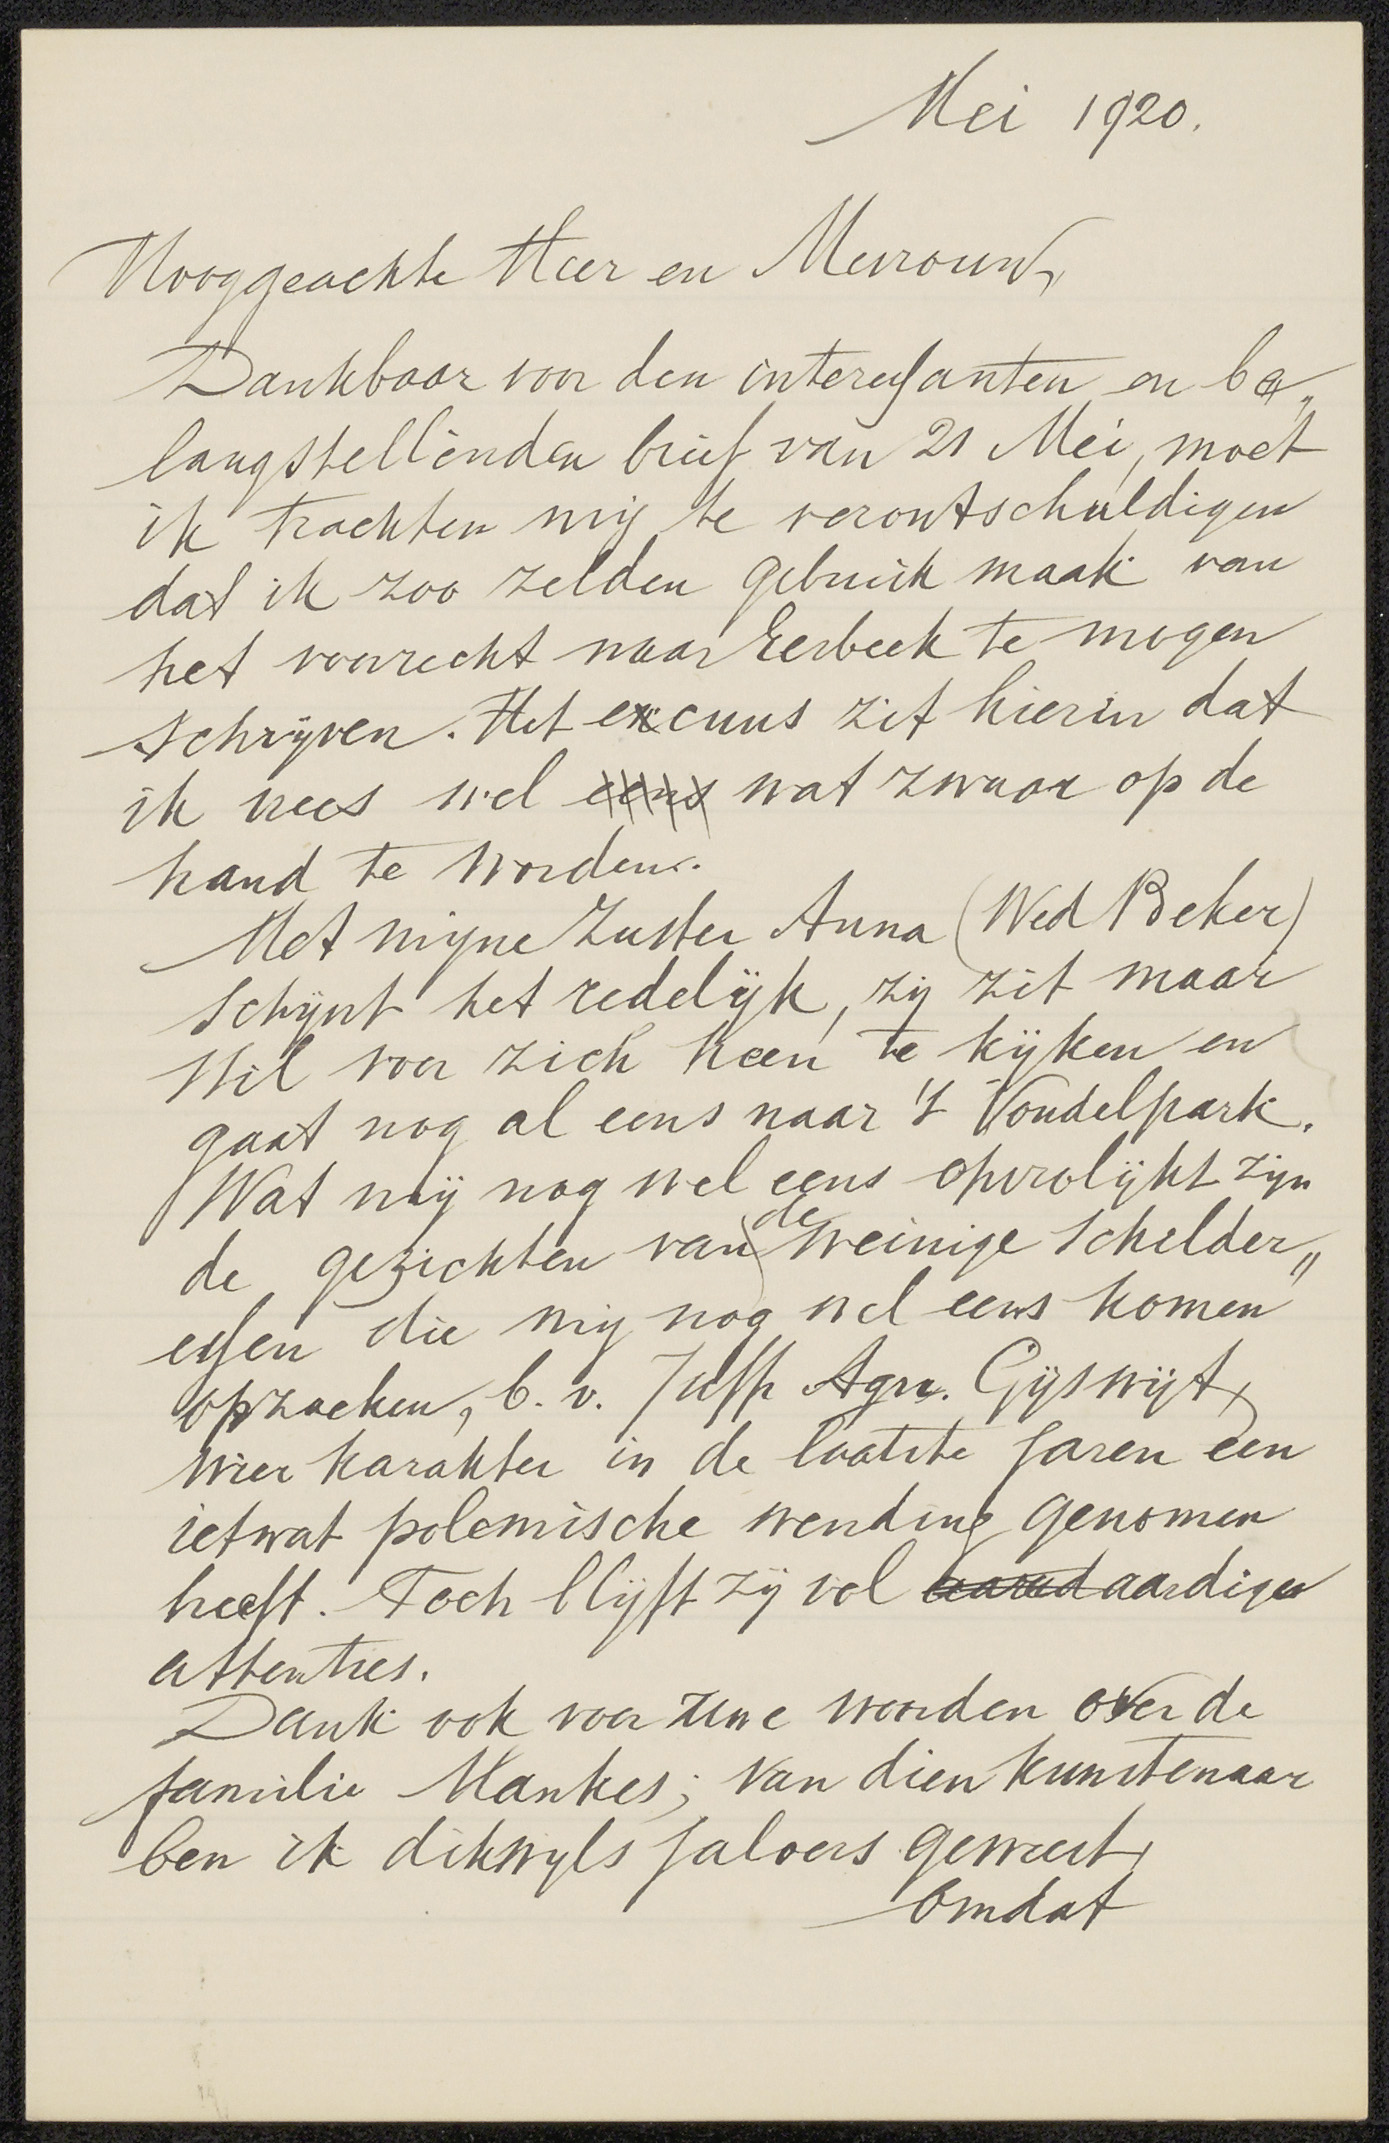 Mei 1920.
Hooggeachte Heer en Mevrouw,
Dankbaar voor den interessanten en be„
langstellenden brief van 21 Mei, moet
ik trachten mij te verontschuldigen
dat ik zoo zelden gebruik maak van
het voorrecht naar Eerbeek te mogen
schrijven. Het excuus zit hierin dat
ik vrees wel eens wat zwaar op de
hand te worden.
Met mijne Zuster Anna (Wed Beker)
schijnt het redelijk, zij zit maar
stil voor zich heen te kijken en
gaat nog al eens naar 't Vondelpark.
Wat mij nog wel eens opvrolijkt zijn
de gezichten van de weinige schilder„
essen die mij nog wel eens komen
opzoeken, b. v. Juffr Agn. Gijswijt,
wier karakter in de laatste jaren een
ietwat polemische wending genomen
heeft. Toch blijft zij vol aardige
attenties.
Dank ook voor Uwe woorden over de
familie Mankes; van dien kunstenaar
ben ik dikwijls jaloers geweest,
omdat